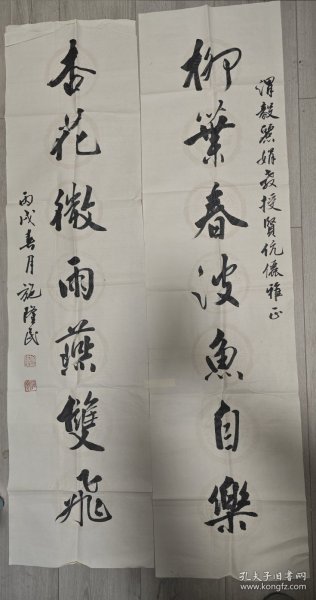 渭毅思娟教授賢伉儷雅正
柳葉春波魚自樂
杏花微雨燕雙飛
丙戌春月施隆民
孔夫子旧书网
www.kongfz.com